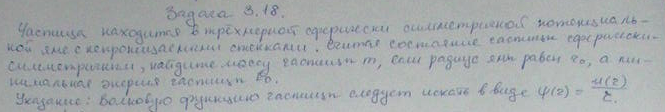 Задача 3.18.
Частица находится в трёхмерной сферически симметричной потенциаль-
ной яме с непроницаемыми стенками. Считая состояние частицы сферически-
симметричным, найдите массу частицы m, если радиус ямы равен r₀, а ми-
нимальная энергия частицы E₀.
Указание: Волновую функцию частицы следует искать в виде ψ(r) = u(r)/r.